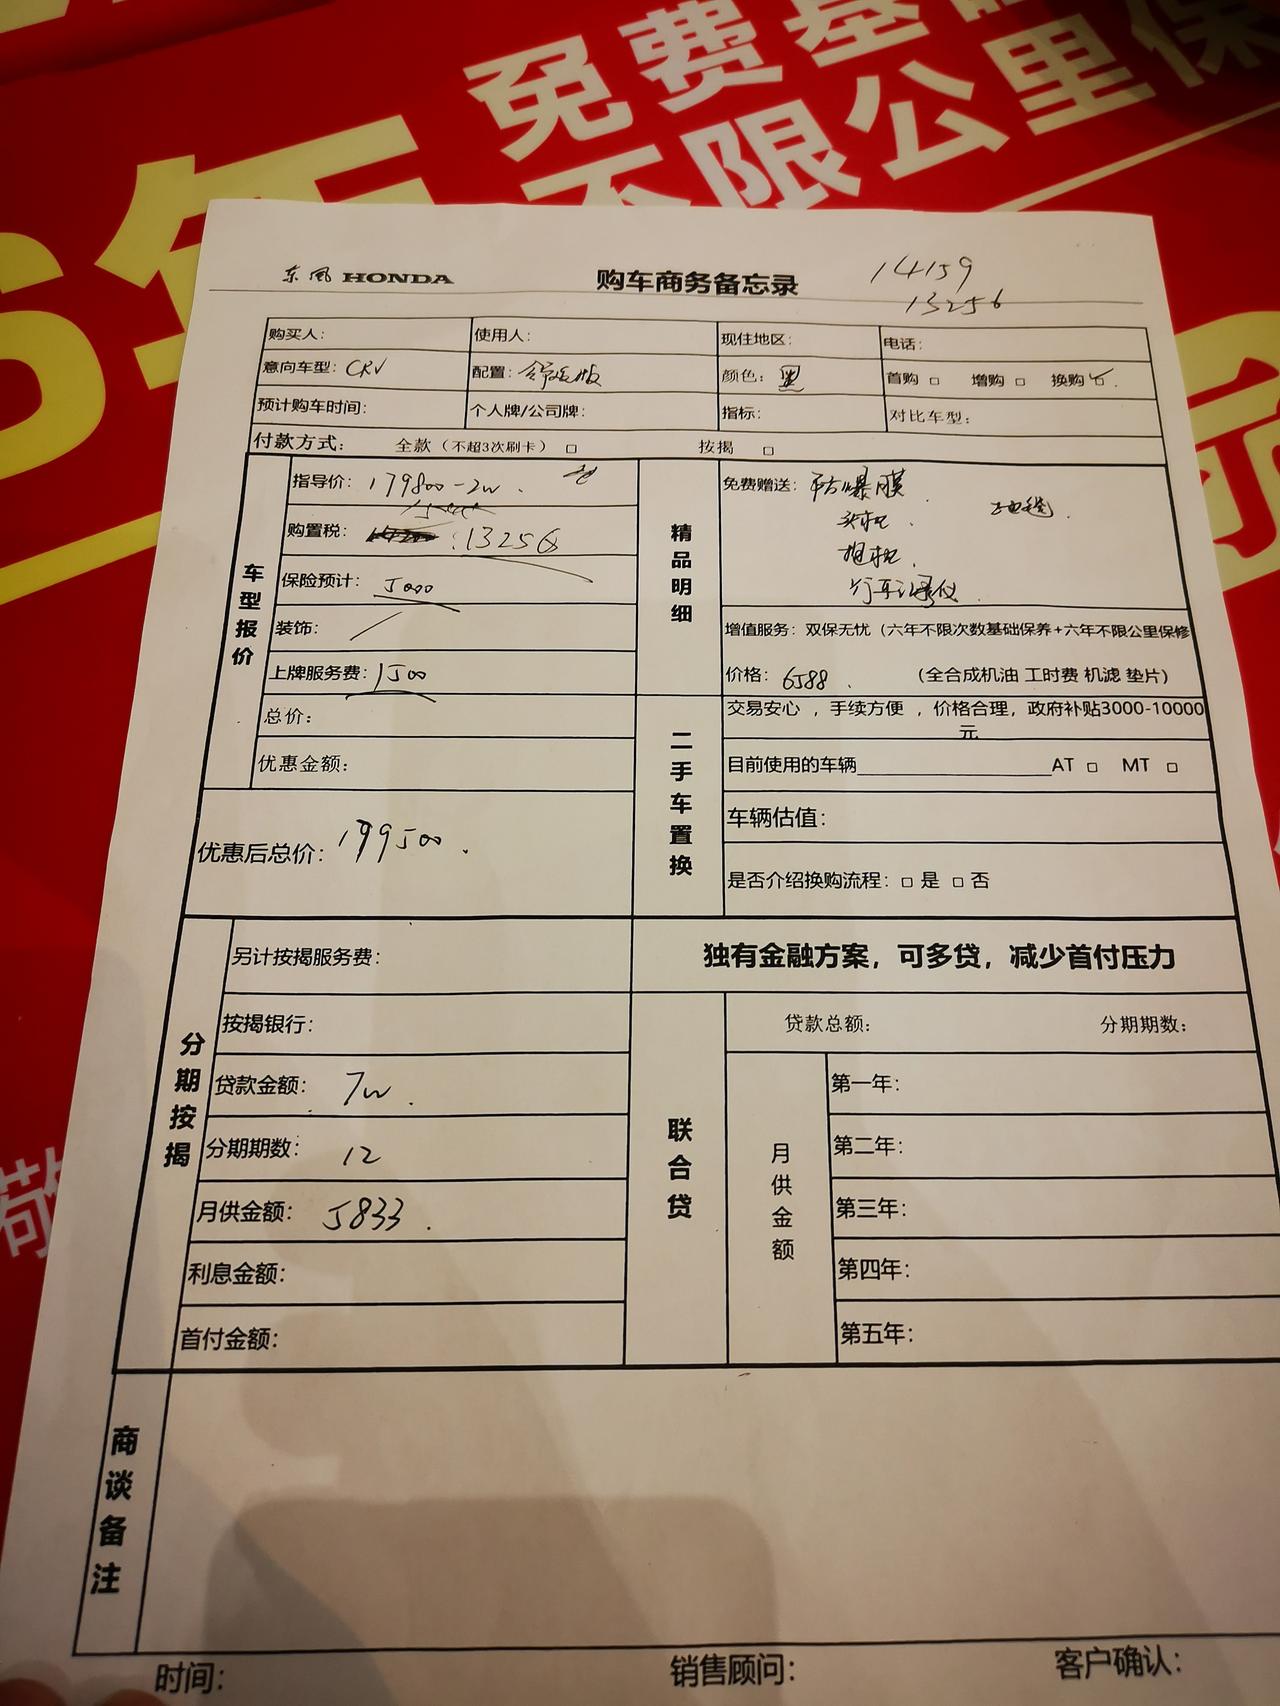 免费基
6年 不限公里保
东风 HONDA 购车商务备忘录 14159
13256
购买人： 使用人： 现住地区： 电话：
意向车型：CRV 配置：舒适版 颜色：黑 首购 □ 增购 □ 换购 ✓
预计购车时间： 个人牌/公司牌： 指标： 对比车型：
付款方式： 全款（不超3次刷卡）□ 按揭 □
车型报价
指导价：179800-2w.
购置税：13256
保险预计：5000
装饰：/
上牌服务费：1500
总价：
优惠金额：
优惠后总价：199500.
精品明细
免费赠送：防爆膜. 地毯.
行车记录仪
增值服务：双保无忧（六年不限次数基础保养+六年不限公里保修
价格：6588. （全合成机油 工时费 机滤 垫片）
二手车置换
交易安心 ，手续方便 ，价格合理，政府补贴3000-10000
元
目前使用的车辆 AT □ MT □
车辆估值：
是否介绍换购流程：□ 是 □ 否
分期按揭
另计按揭服务费：
按揭银行：
贷款金额：7w.
分期期数：12
月供金额：5833.
利息金额：
首付金额：
独有金融方案，可多贷，减少首付压力
联合贷
贷款总额： 分期期数：
月供金额
第一年：
第二年：
第三年：
第四年：
第五年：
商谈备注
时间： 销售顾问： 客户确认：